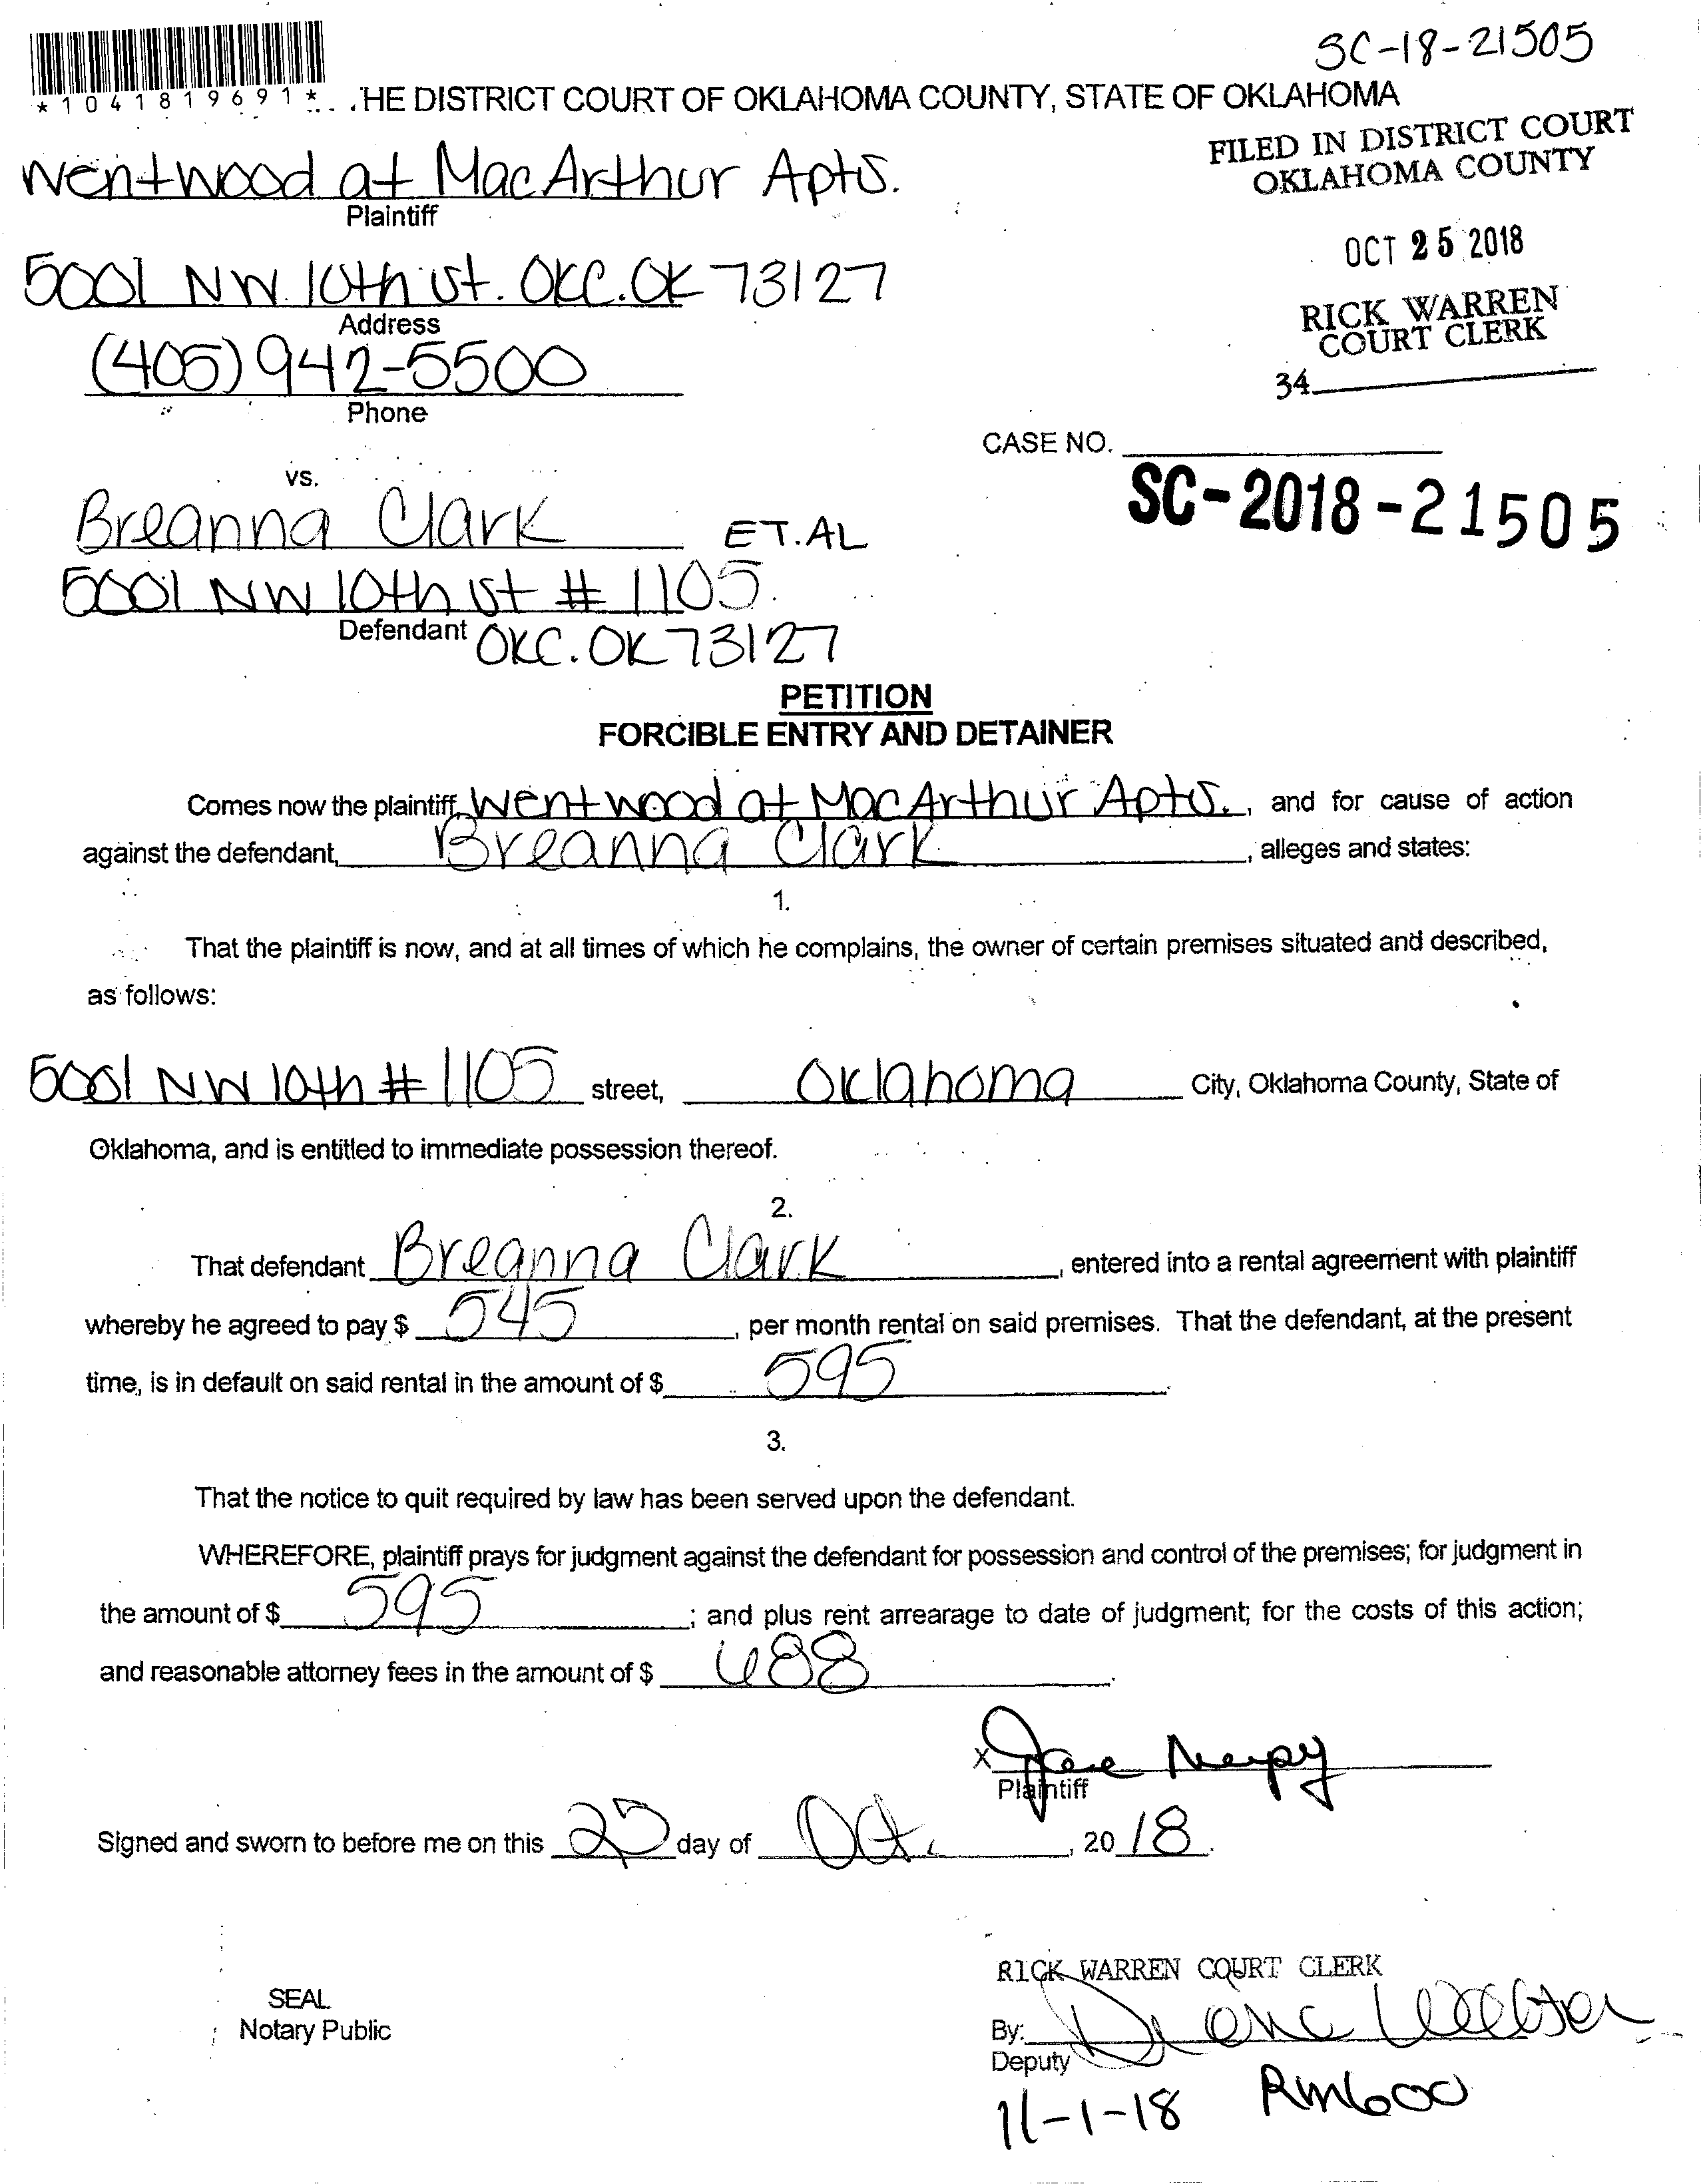 SC-18-21505
*1041819691* . . .HE DISTRICT COURT OF OKLAHOMA COUNTY, STATE OF OKLAHOMA
FILED IN DISTRICT COURT
OKLAHOMA COUNTY
Wentwood at MacArthur Apts.
Plaintiff
OCT 25 2018
5001 NW 10th st. OKC. OK 73127
Address
RICK WARREN
COURT CLERK
(405) 942-5500
Phone
34
CASE NO.
SC-2018-21505
vs.
Breanna Clark ET.AL
5001 NW 10th st # 1105
Defendant OKC. OK 73127
PETITION
FORCIBLE ENTRY AND DETAINER
Comes now the plaintiff, Wentwood at MacArthur Apts., and for cause of action
against the defendant, Breanna Clark, alleges and states:
1.
That the plaintiff is now, and at all times of which he complains, the owner of certain premises situated and described,
as follows:
5001 NW 10th # 1105 street, Oklahoma City, Oklahoma County, State of
Oklahoma, and is entitled to immediate possession thereof.
2.
That defendant Breanna Clark, entered into a rental agreement with plaintiff
whereby he agreed to pay $ 545, per month rental on said premises. That the defendant, at the present
time, is in default on said rental in the amount of $ 595.
3.
That the notice to quit required by law has been served upon the defendant.
WHEREFORE, plaintiff prays for judgment against the defendant for possession and control of the premises; for judgment in
the amount of $ 595; and plus rent arrearage to date of judgment; for the costs of this action;
and reasonable attorney fees in the amount of $ 688.
X
Plaintiff
Signed and sworn to before me on this 25 day of Oct., 20 18.
RICK WARREN COURT CLERK
SEAL
Notary Public
By:
Deputy
11-1-18 Rm600